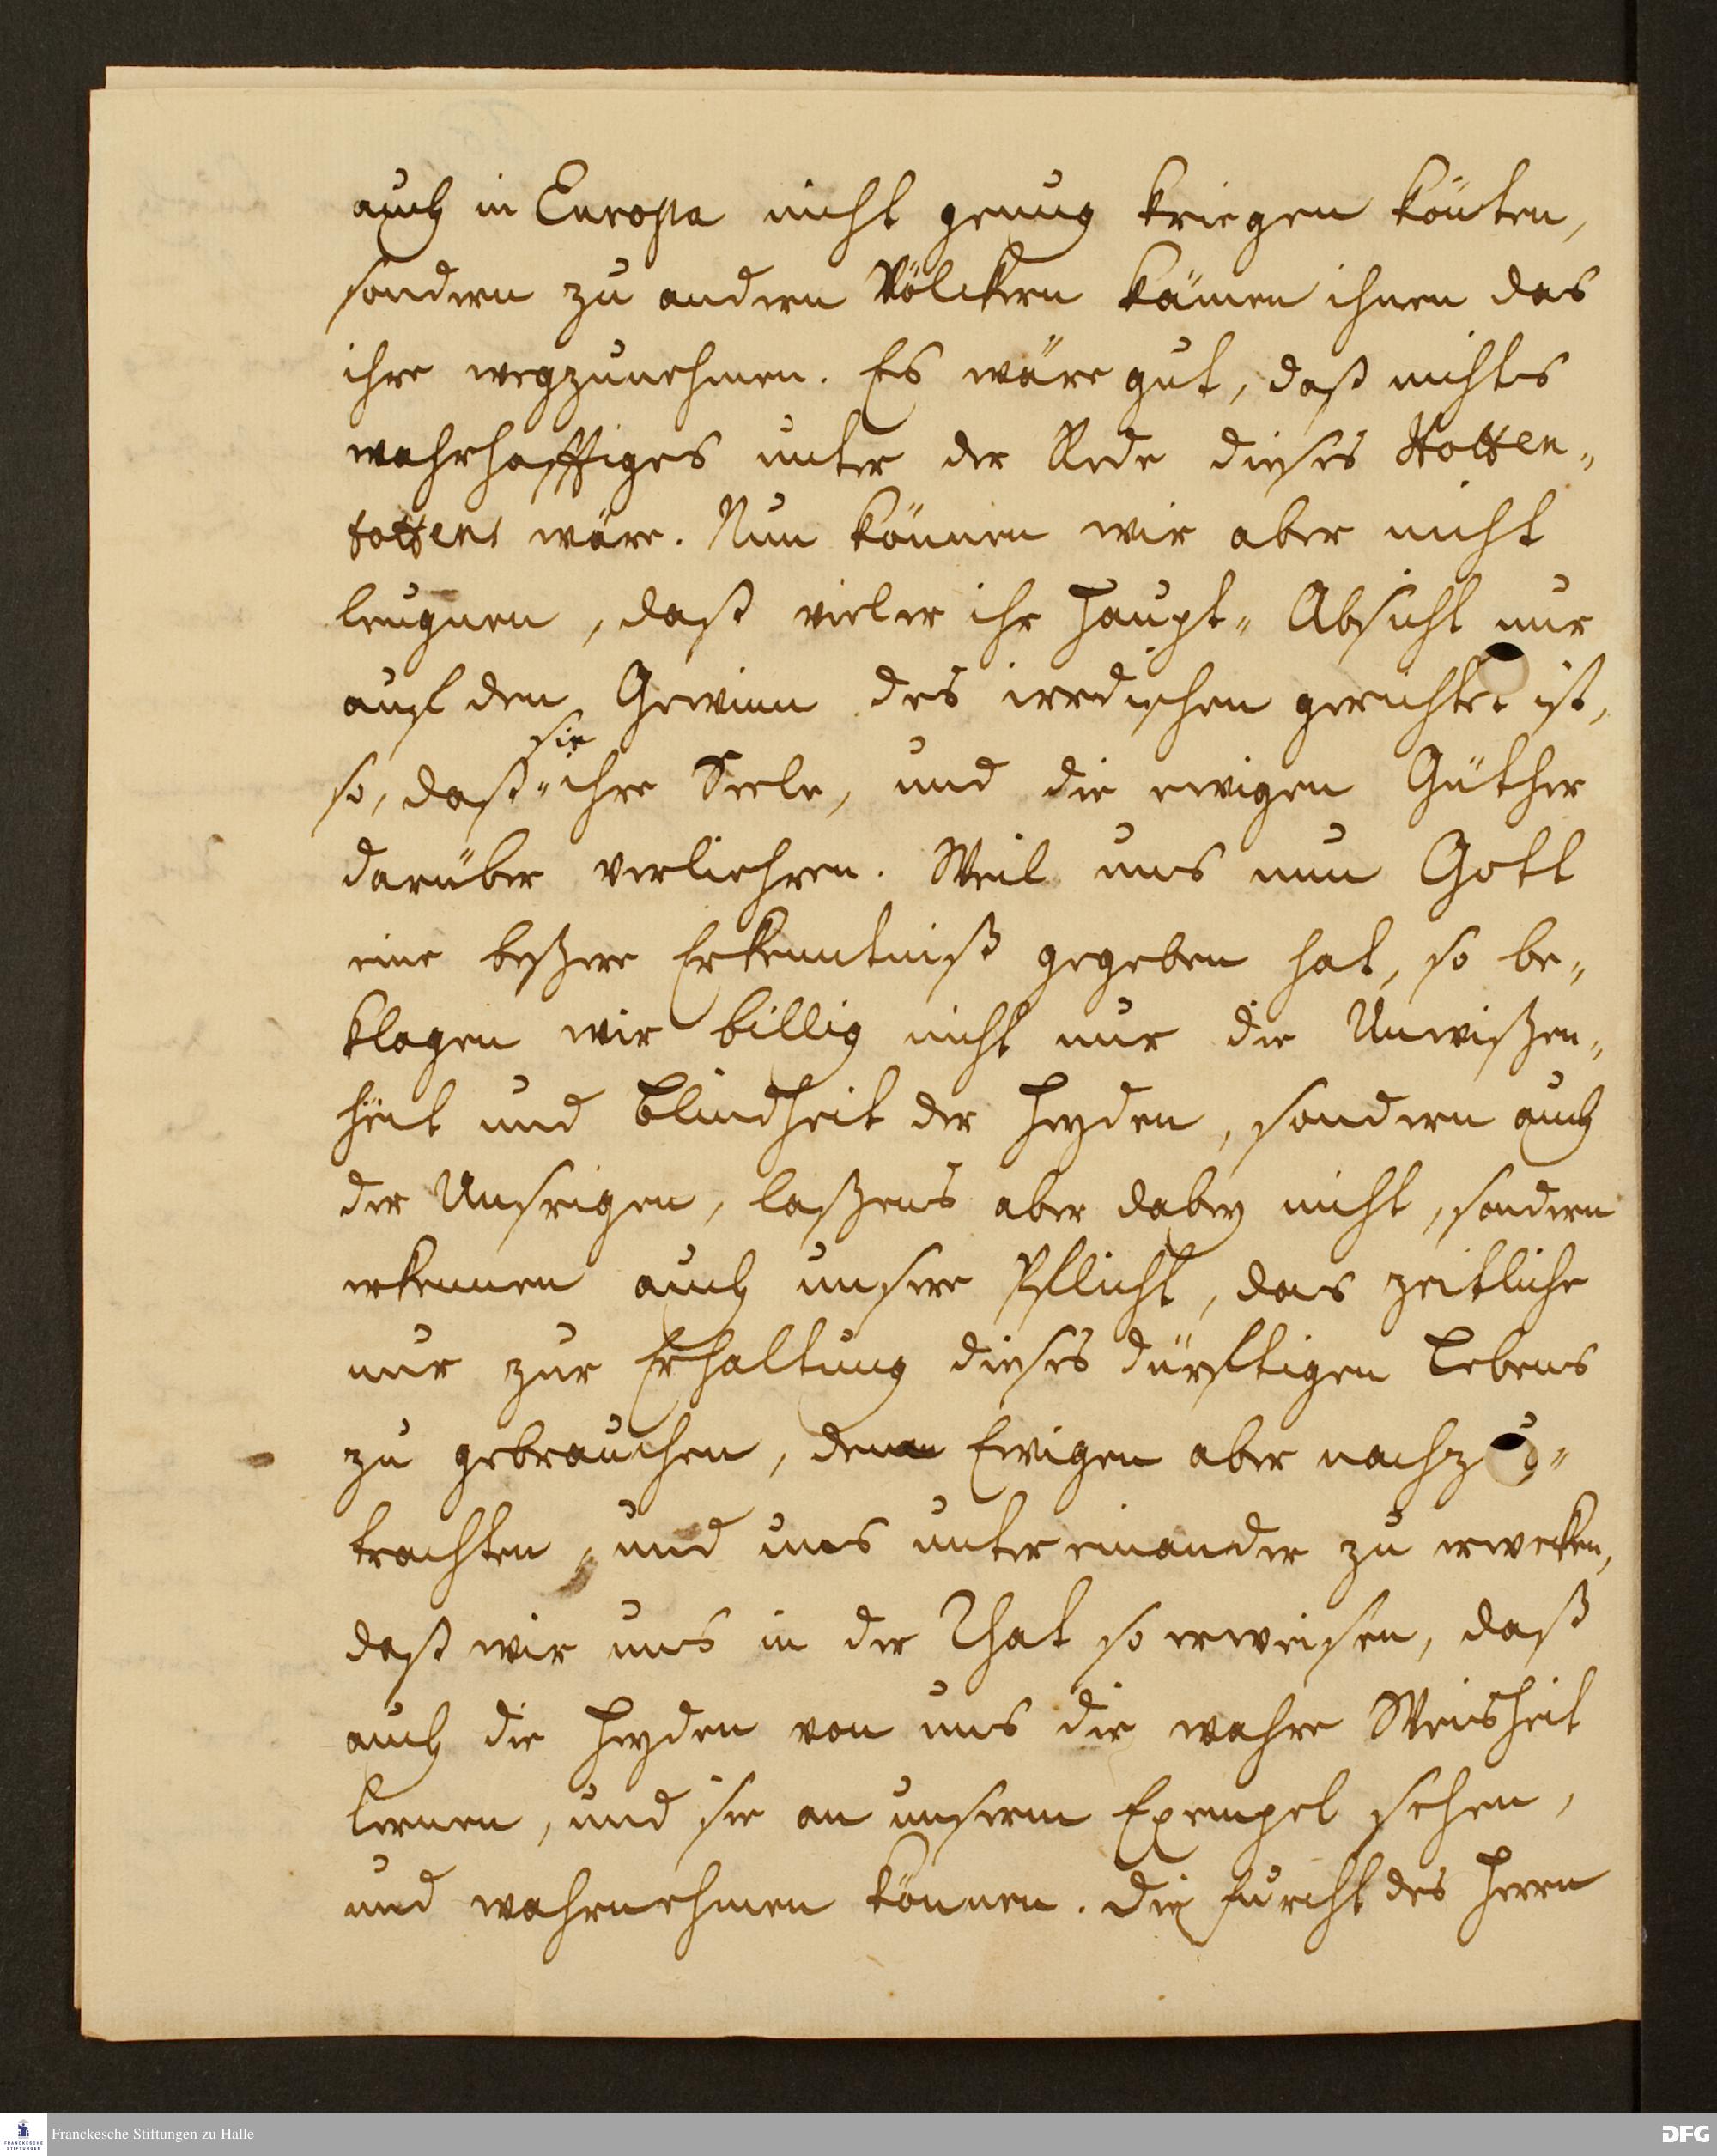 auch in Europa nicht genug kriegen könten,
sondern zu andern Völckern kämen ihnen das
ihre wegzunehmen. Es wäre gut, daß nichts
wahrhafftiges unter der Rede dieses Hotten-
tottens wäre. Nun können wir aber nicht
leugnen, daß vieler ihr Haupt-Absicht nur
auf den Gewinn des irrdischen gerichtet ist,
so, daß sie ihre Seele, und die ewigen Güther
darüber verliehren. Weil uns nun Gott
eine beßere Erkenntniß gegeben hat, so be-
klagen wir billig nicht nur die Unwißen-
heit und Blindheit der Heyden, sondern auch
der Unsrigen, laßens aber dabey nicht, sondern
erkennen auch unsere Pflicht, das zeitliche
nur zur Erhaltung dieses dürftigen Lebens
zu gebrauchen, dem Ewigen aber nachzu-
trachten, und uns unter einander zu erwecken,
daß wir uns in der That so erweisen, daß
auch die Heyden von uns die wahre Weisheit
lernen, und sie an unserm Exempel sehen,
und wahrnehmen können. Die Furcht des Herrn
Franckesche Stiftungen zu Halle
DFG